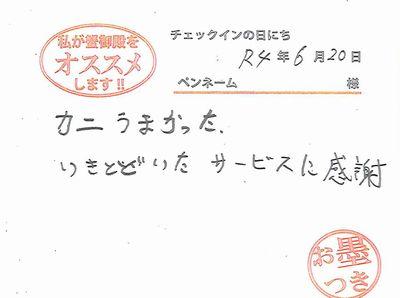 私が蟹御殿を
オススメ
します!!
チェックインの日にち
R4年6月20日
ペンネーム 様
カニうまかった、
いきとどいた サービスに感謝
お墨
つき